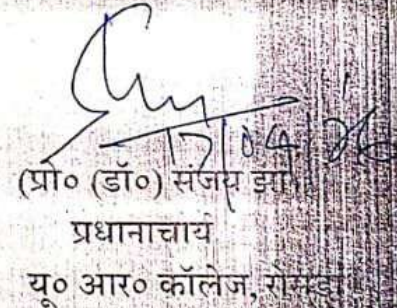 17/04/26
(प्रो० (डॉ०) संजय झा)
प्रधानाचार्य
यू० आर० कॉलेज, रोसड़ा